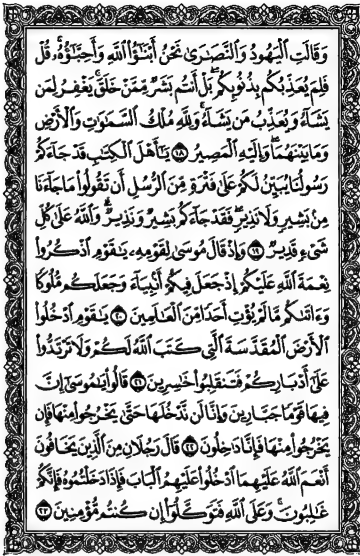 وَقَالَتِ الْيَهُودُ وَالنَّصَٰرَىٰ نَحْنُ أَبْنَٰٓؤُا۟ اللَّهِ وَأَحِبَّٰٓؤُهُۥ ۚ قُلْ
فَلِمَ يُعَذِّبُكُم بِذُنُوبِكُم ۖ بَلْ أَنتُم بَشَرٌ مِّمَّنْ خَلَقَ ۚ يَغْفِرُ لِمَن
يَشَآءُ وَيُعَذِّبُ مَن يَشَآءُ ۚ وَلِلَّهِ مُلْكُ السَّمَٰوَٰتِ وَالْأَرْضِ
وَمَا بَيْنَهُمَا ۖ وَإِلَيْهِ الْمَصِيرُ ١٨ يَٰٓأَهْلَ الْكِتَٰبِ قَدْ جَآءَكُمْ
رَسُولُنَا يُبَيِّنُ لَكُمْ عَلَىٰ فَتْرَةٍ مِّنَ الرُّسُلِ أَن تَقُولُوا۟ مَا جَآءَنَا
مِنۢ بَشِيرٍ وَلَا نَذِيرٍ ۖ فَقَدْ جَآءَكُم بَشِيرٌ وَنَذِيرٌ ۗ وَاللَّهُ عَلَىٰ كُلِّ
شَىْءٍ قَدِيرٌ ١٩ وَإِذْ قَالَ مُوسَىٰ لِقَوْمِهِۦ يَٰقَوْمِ اذْكُرُوا۟
نِعْمَةَ اللَّهِ عَلَيْكُمْ إِذْ جَعَلَ فِيكُمْ أَنۢبِيَآءَ وَجَعَلَكُم مُّلُوكًا
وَءَاتَىٰكُم مَّا لَمْ يُؤْتِ أَحَدًا مِّنَ الْعَٰلَمِينَ ٢٠ يَٰقَوْمِ ادْخُلُوا۟
الْأَرْضَ الْمُقَدَّسَةَ الَّتِى كَتَبَ اللَّهُ لَكُمْ وَلَا تَرْتَدُّوا۟
عَلَىٰٓ أَدْبَارِكُمْ فَتَنقَلِبُوا۟ خَٰسِرِينَ ٢١ قَالُوا۟ يَٰمُوسَىٰٓ إِنَّ
فِيهَا قَوْمًا جَبَّارِينَ وَإِنَّا لَن نَّدْخُلَهَا حَتَّىٰ يَخْرُجُوا۟ مِنْهَا فَإِن
يَخْرُجُوا۟ مِنْهَا فَإِنَّا دَٰخِلُونَ ٢٢ قَالَ رَجُلَانِ مِنَ الَّذِينَ يَخَافُونَ
أَنْعَمَ اللَّهُ عَلَيْهِمَا ادْخُلُوا۟ عَلَيْهِمُ الْبَابَ فَإِذَا دَخَلْتُمُوهُ فَإِنَّكُمْ
غَٰلِبُونَ ۚ وَعَلَى اللَّهِ فَتَوَكَّلُوٓا۟ إِن كُنتُم مُّؤْمِنِينَ ٢٣